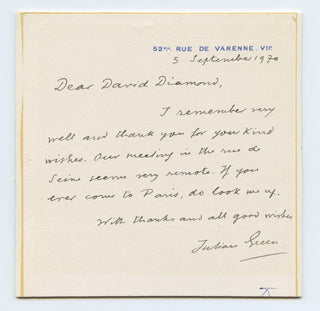 52bis, RUE DE VARENNE. VIIe
5 September 1970
Dear David Diamond,
I remember very
well and thank you for your kind
wishes. Our meeting in the rue de
Seine seems very remote. If you
ever come to Paris, do look me up.
With thanks and all good wishes
Julian Green